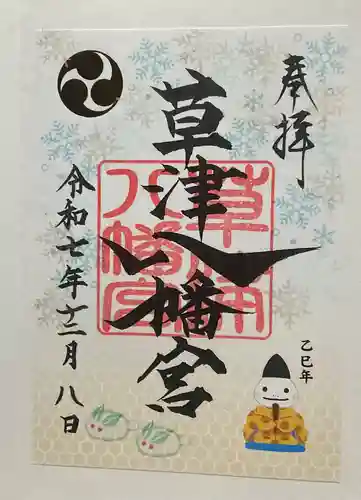 奉拝
草津八幡宮
草津
八幡宮
令和七年十二月八日
乙巳年